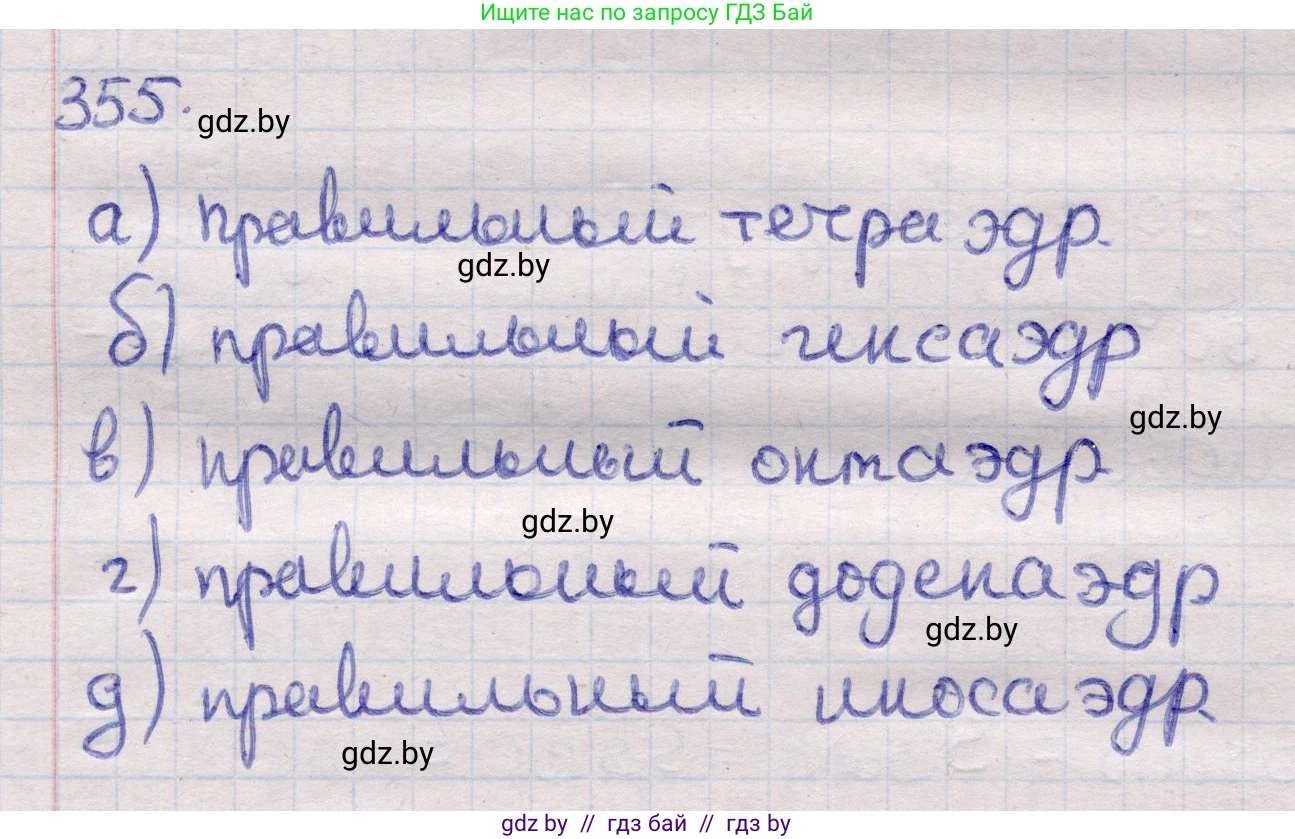 Ищите нас по запросу ГДЗ Бай
355.
gdz.by
а) правильный тетраэдр.
gdz.by
б) правильный гексаэдр
gdz.by
в) правильный октаэдр.
gdz.by
г) правильный додекаэдр
gdz.by
д) правильный икосаэдр.
gdz.by
gdz by // гдз бай // гдз by